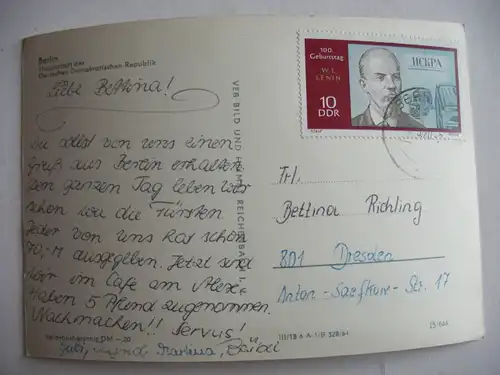 Berlin
Hauptstadt der
Deutschen Demokratischen Republik
Liebe Bettina!
Du sollst von uns einen
Gruß aus Berlin erhalten.
Den ganzen Tag leben wir
schon wie die Fürsten
Jeder von uns hat schon
70,-M ausgegeben. Jetzt sind
wir im Cafe am Alex.
Haben 5 Pfund zugenommen.
Nachmachen!! Servus!
Martina, Bärbel
VEB BILD UND HEIMAT REICHENBACH I. V.
100.
Geburtstag
W. I.
LENIN
10
DDR
ИСКРА
Frl.
Bettina Richling
801 Dresden
Anton-Saefkow-Str. 17